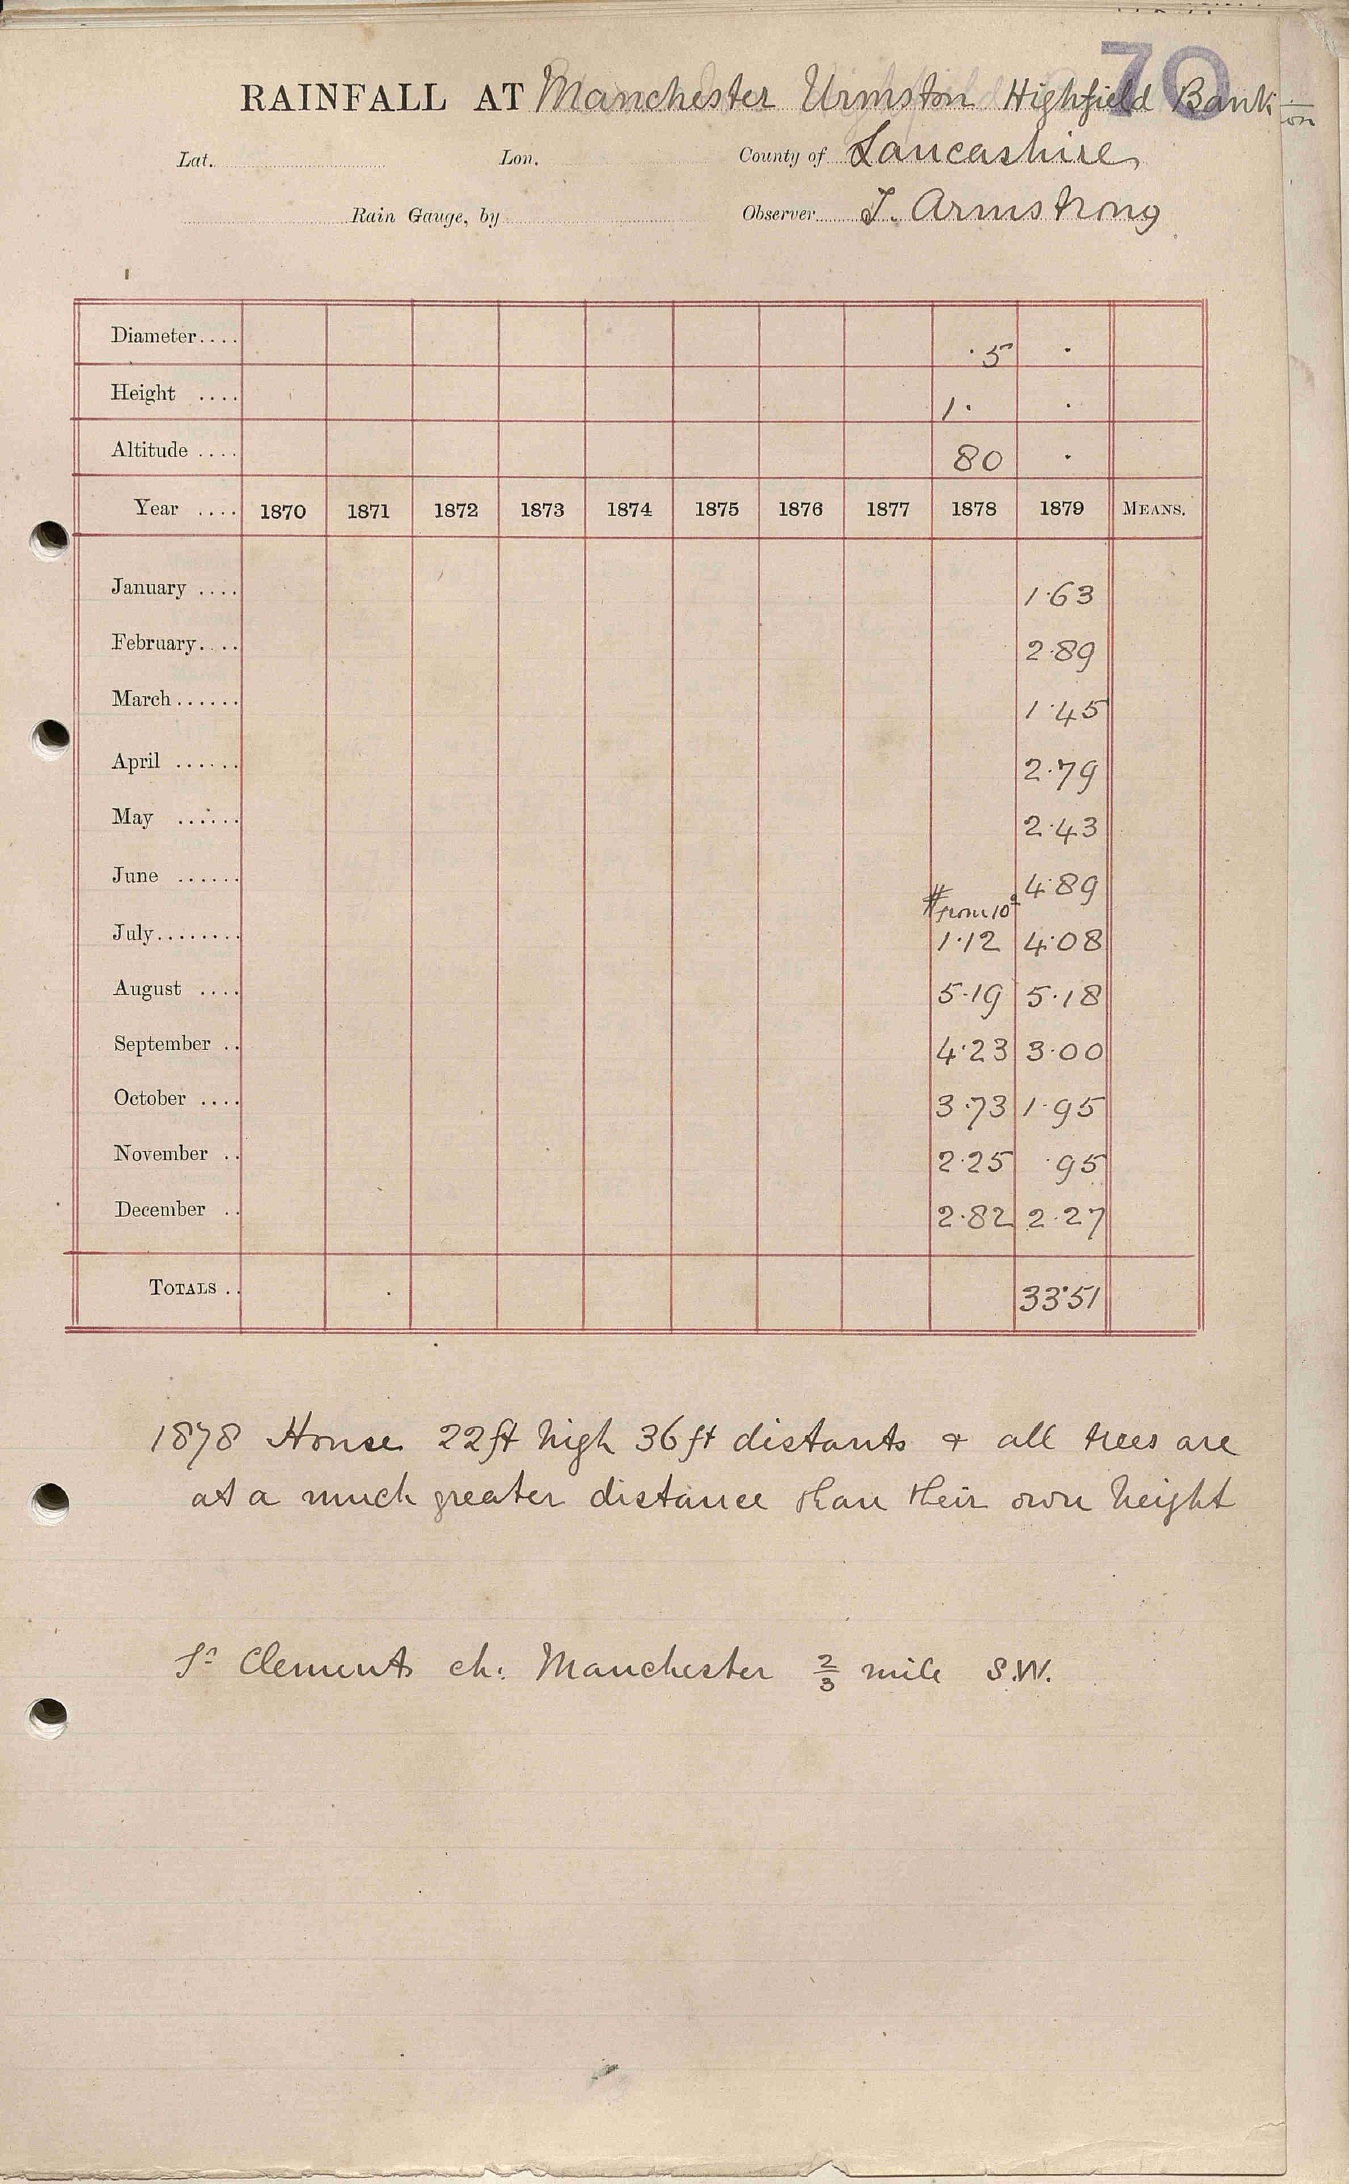 70
RAINFALL AT Manchester Urmston Highfield Bank
Lat. Lon. County of Lancashire
Rain Gauge, by Observer T. Armstrong
Diameter.... ·5 ·
Height .... 1· ·
Altitude .... 80 ·
Year .... 1870 1871 1872 1873 1874 1875 1876 1877 1878 1879 MEANS.
January .... 1·63
February.... 2·89
March...... 1·45
April ...... 2·79
May ...... 2·43
June ...... 4·89
# from 10th
July........ 1·12 4·08
August .... 5·19 5·18
September .. 4·23 3·00
October .... 3·73 1·95
November .. 2·25 ·95
December .. 2·82 2·27
TOTALS .. 33·51
1878 House 22ft high 36ft distants & all trees are
at a much greater distance than their own height
St Clements ch: Manchester 2/3 mile S.W.